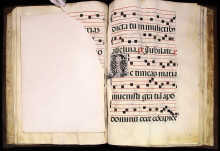 dicta tu in mulieribus
Alleluia. Jubilate
Ne timeas maria
inuenisti gratiā apo
dominū ecce concipies